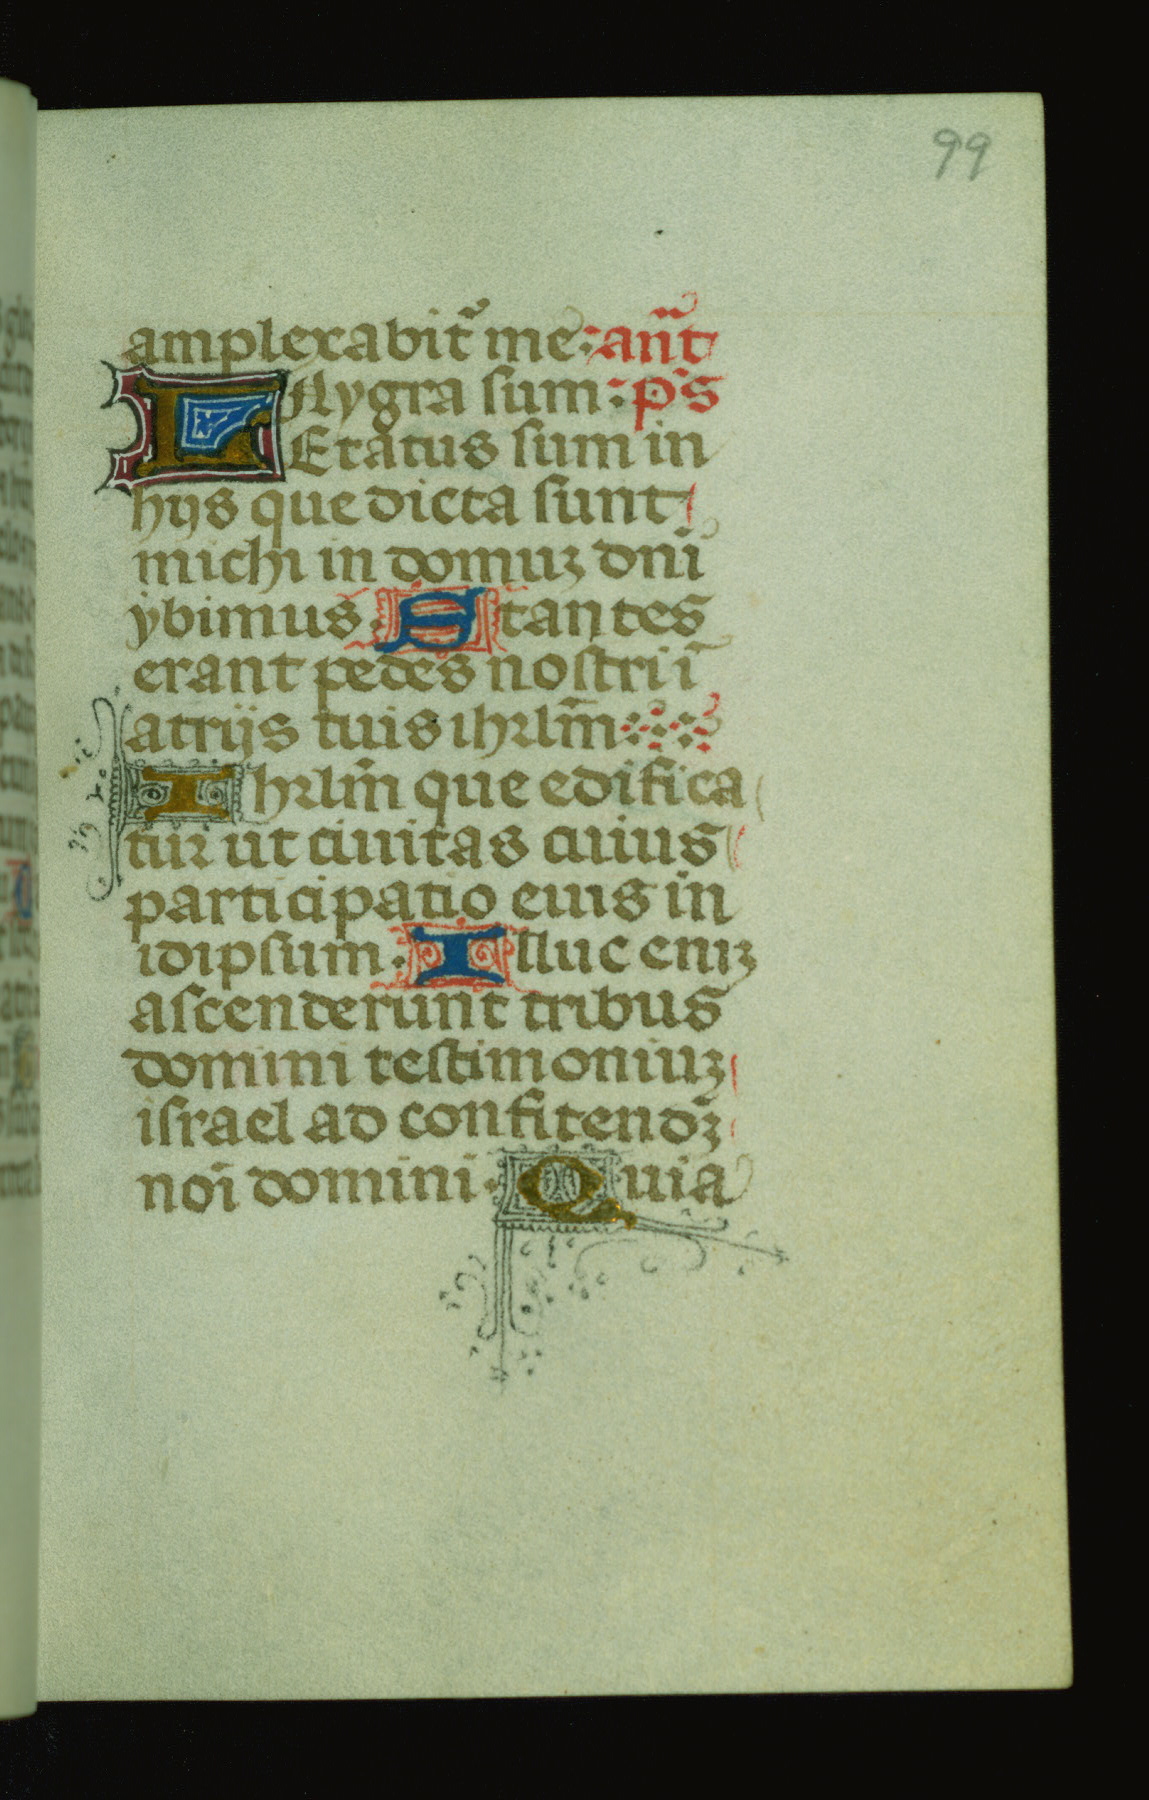 99
amplexabit᷑ me: an̄t
Nygra sum: ps̄
LEtatus sum in
hijs que dicta sunt
michi in domuʒ dnī
ybimus. Stantes
erant pedes nostri ī
atrijs tuis ihrlm̄
Ihrlm̄ que edifica
tur ut ciuitas cuius
participatio eius in
idipsum. Illuc eniʒ
ascenderunt tribus
domini testimoniuʒ
israel ad confitendʒ̄
noī domini. Quia